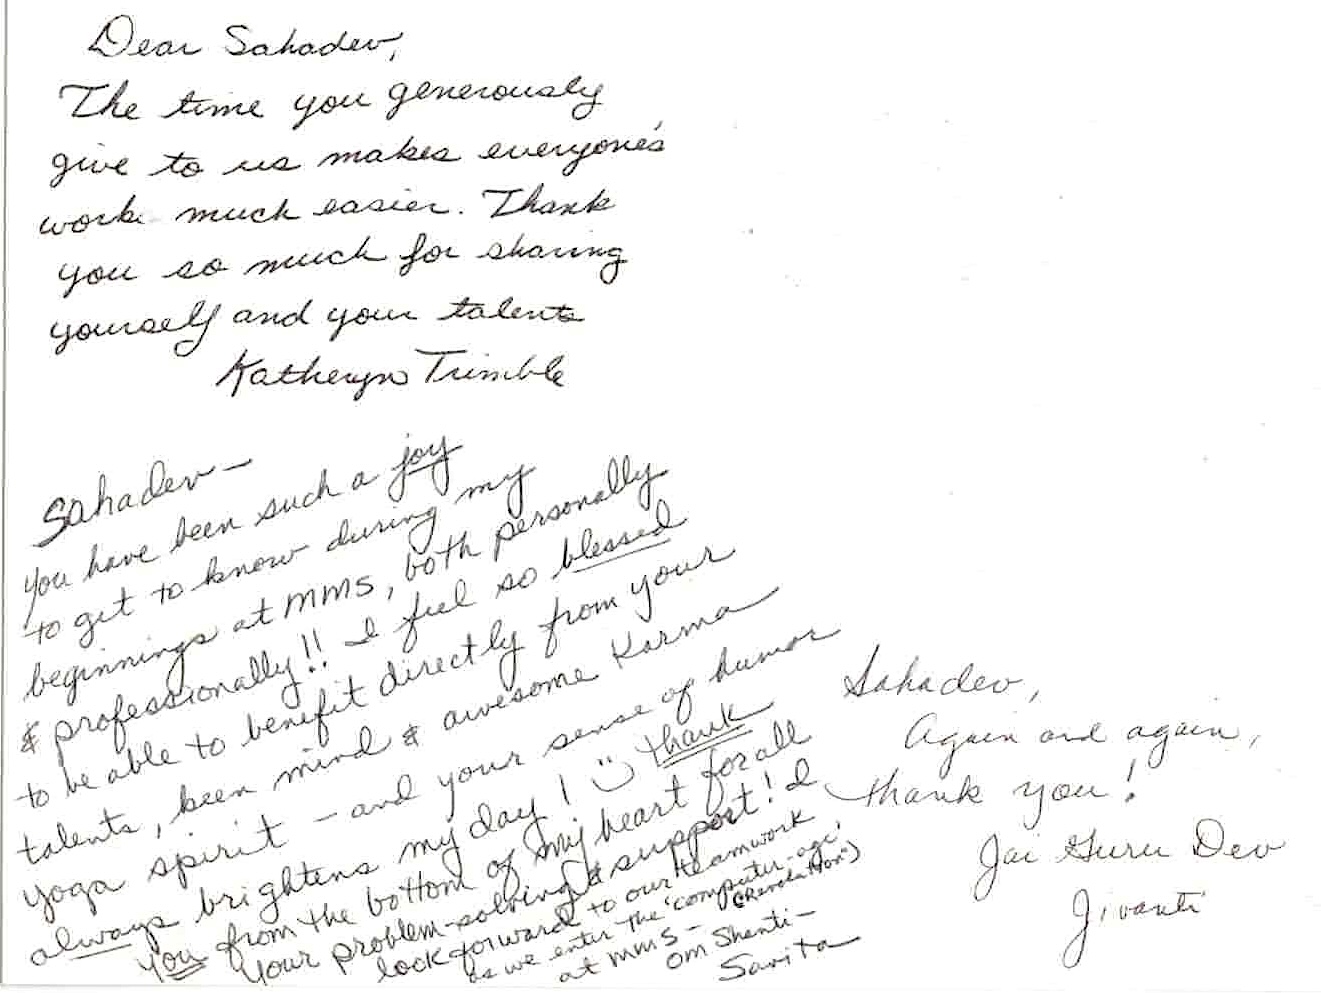 Dear Sahadev,
The time you generously
give to us makes everyone's
work much easier. Thank
you so much for sharing
yourself and your talents
Katheryn Trimble
Sahadev –
You have been such a joy
to get to know during my
beginnings at MMS, both personally
& professionally!! I feel so blessed
to be able to benefit directly from your
talents, keen mind & awesome Karma
yoga spirit – and your sense of humor
always brightens my day! Thank
you from the bottom of my heart for all
your problem-solving & support! I
look forward to our teamwork
as we enter the 'computer-age'
at MMS –
Om Shanti –
Savita
Sahadev,
Again and again,
thank you!
Jai Guru Dev
Jivanti